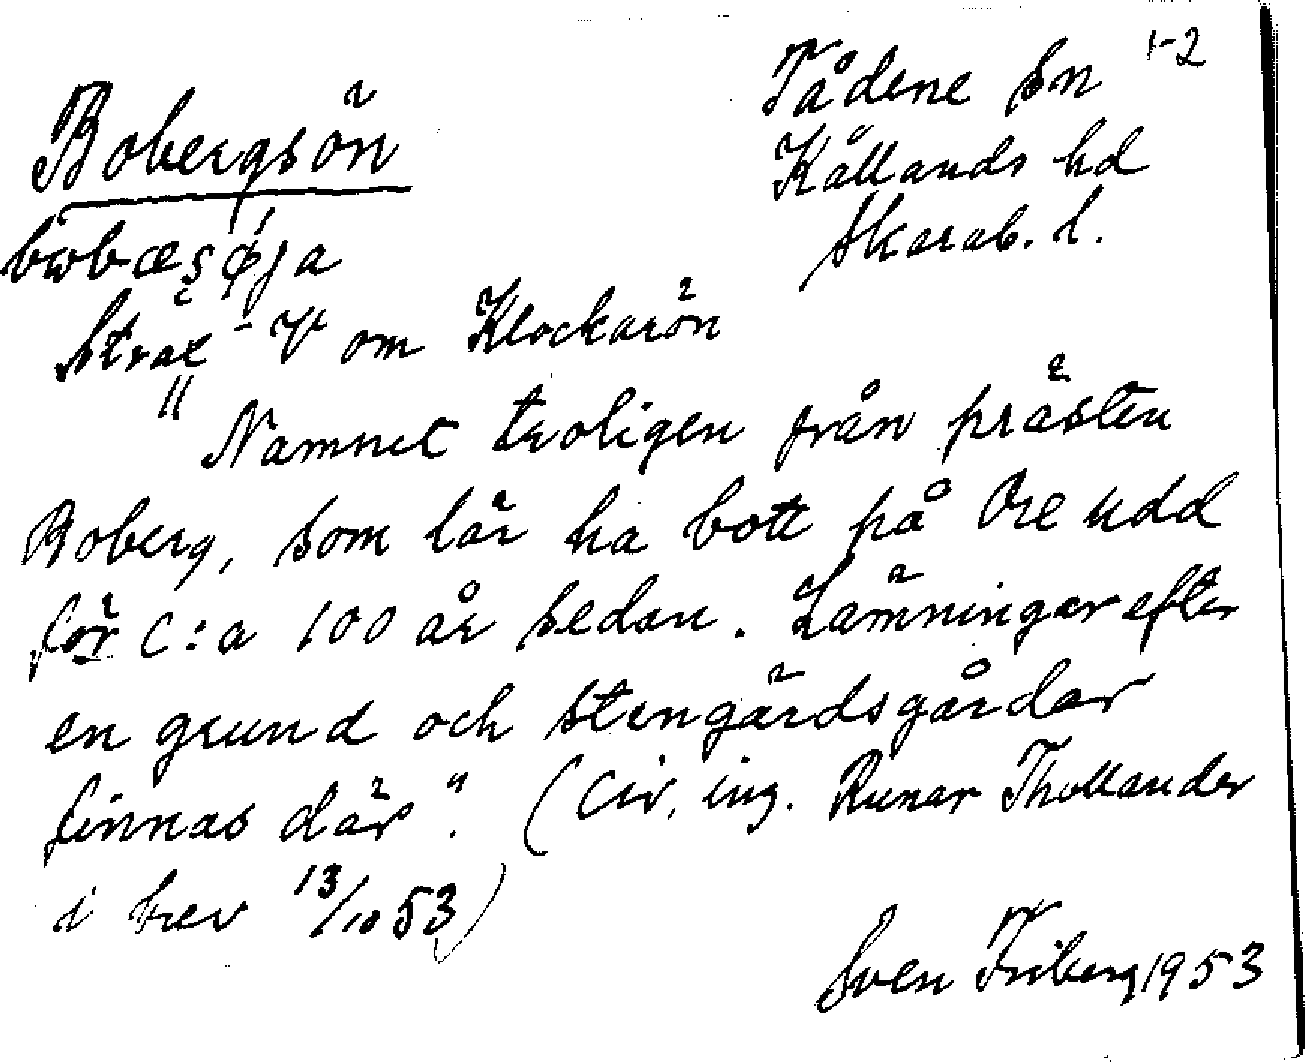 Bobergsön
Tådene sn 1-2
Kållands hd
Skarab. l.
Strax V om Klockarön
"Namnet troligen från prästen
Boberg, som lär ha bott på Ore udd
för c:a 100 år sedan. Lämningar efter
en grund och stengärdsgårdar
finnas där". (Civ. ing. Runar Thollander
i brev 13/10 53)
Sven Friberg 1953